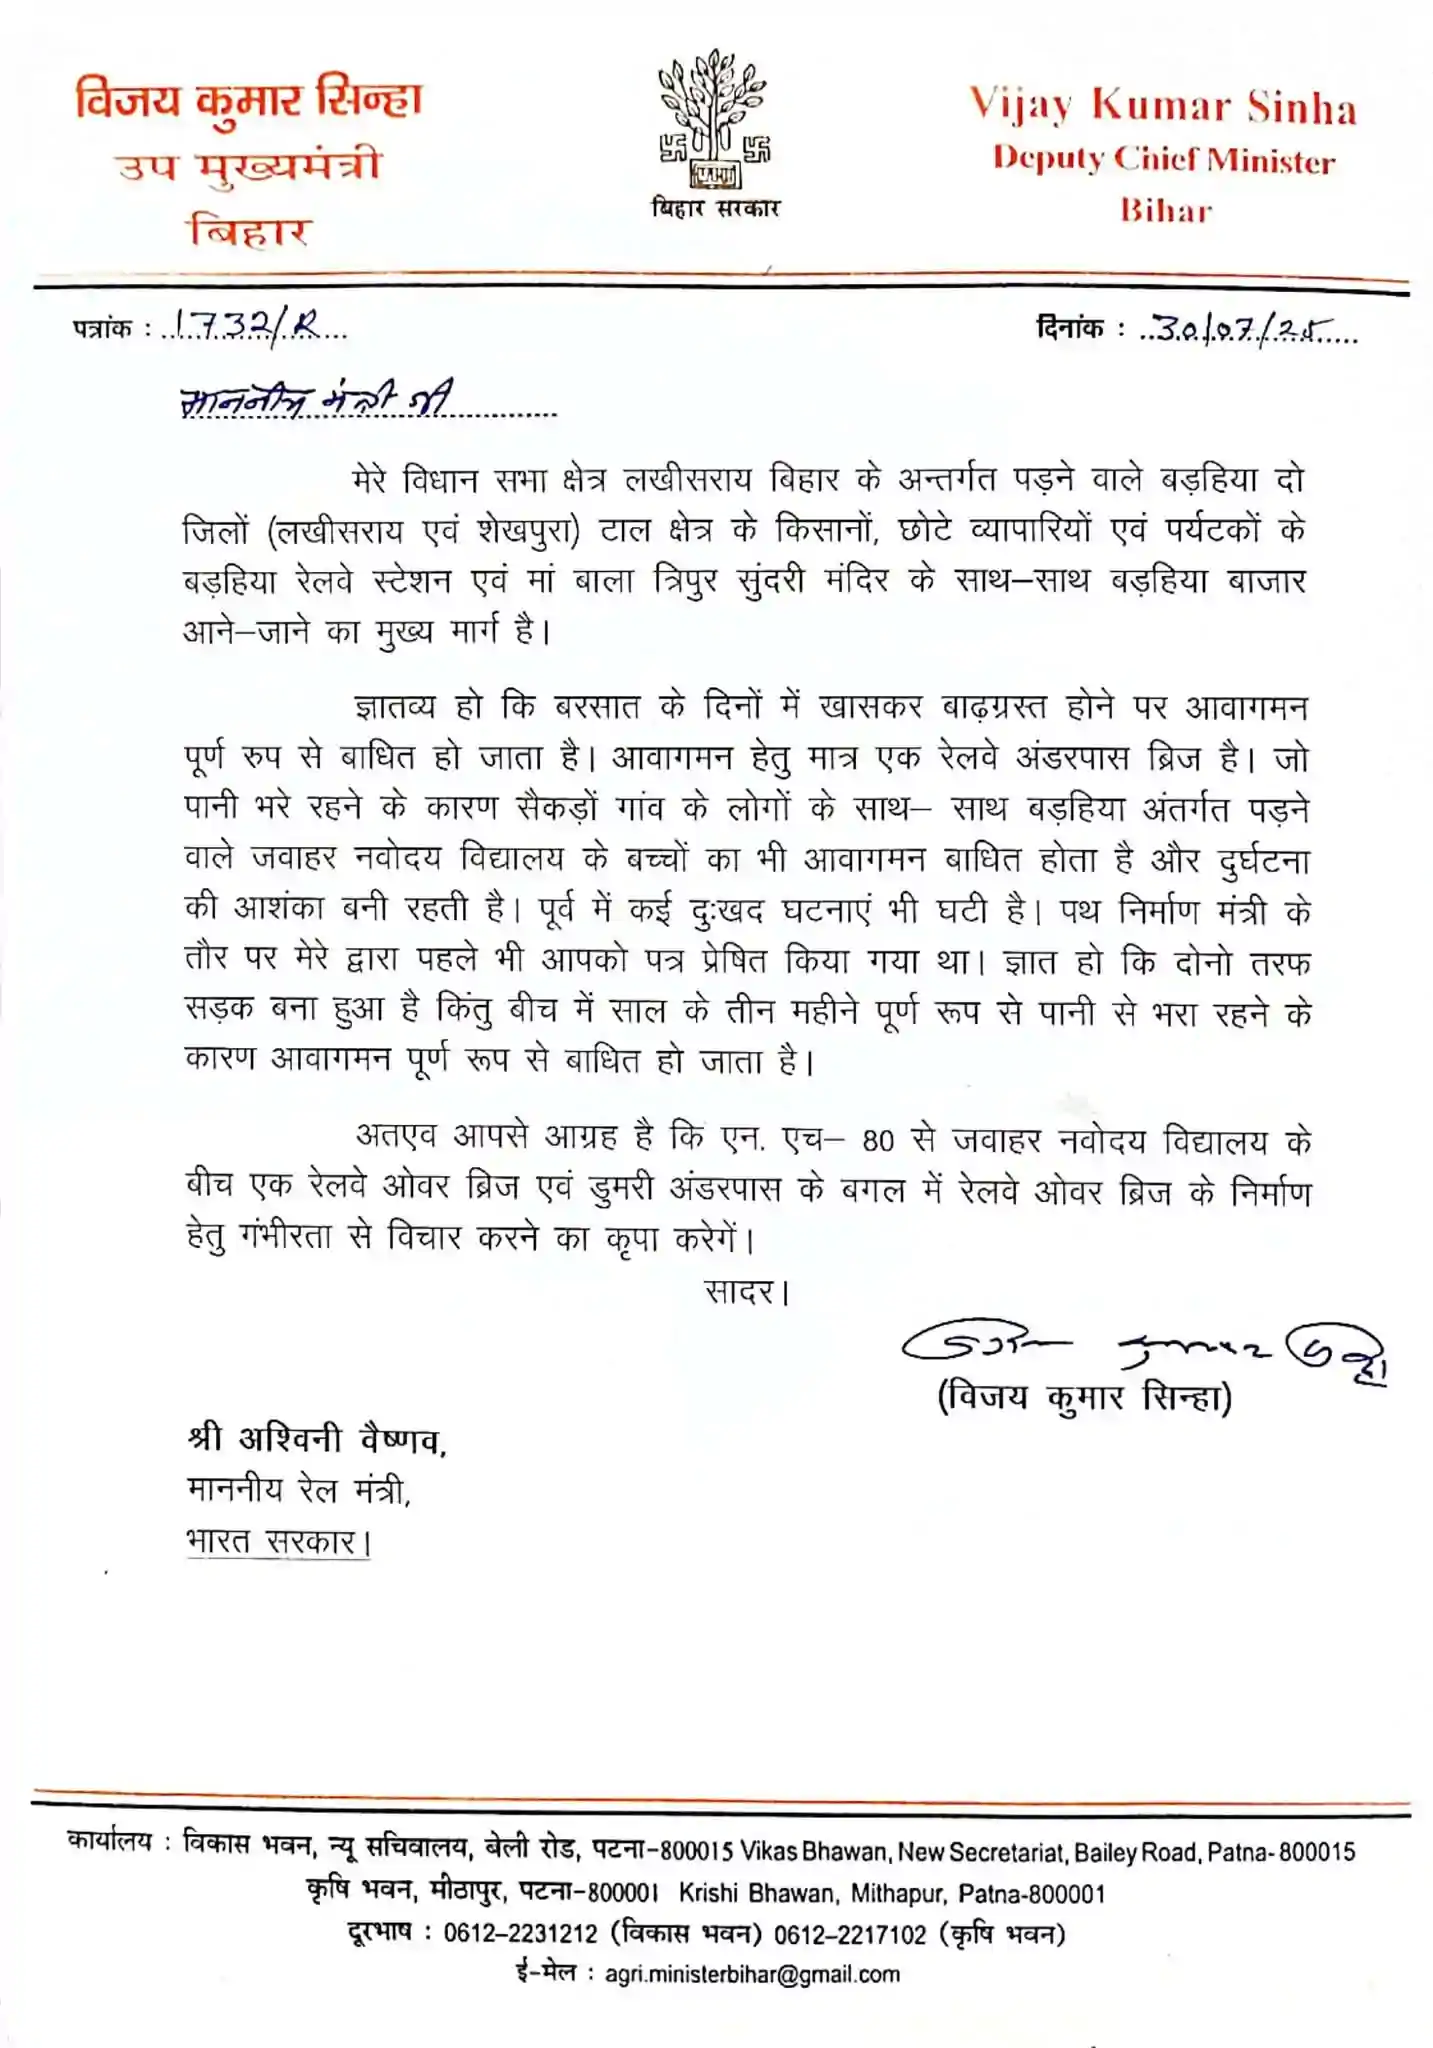 विजय कुमार सिन्हा
उप मुख्यमंत्री
बिहार
बिहार सरकार
Vijay Kumar Sinha
Deputy Chief Minister
Bihar
पत्रांक : 1732/R
दिनांक : 30/07/25
माननीय मंत्री जी
मेरे विधान सभा क्षेत्र लखीसराय बिहार के अन्तर्गत पड़ने वाले बड़हिया दो
जिलों (लखीसराय एवं शेखपुरा) टाल क्षेत्र के किसानों, छोटे व्यापारियों एवं पर्यटकों के
बड़हिया रेलवे स्टेशन एवं मां बाला त्रिपुर सुंदरी मंदिर के साथ–साथ बड़हिया बाजार
आने–जाने का मुख्य मार्ग है।
ज्ञातव्य हो कि बरसात के दिनों में खासकर बाढ़ग्रस्त होने पर आवागमन
पूर्ण रुप से बाधित हो जाता है। आवागमन हेतु मात्र एक रेलवे अंडरपास ब्रिज है। जो
पानी भरे रहने के कारण सैकड़ों गांव के लोगों के साथ– साथ बड़हिया अंतर्गत पड़ने
वाले जवाहर नवोदय विद्यालय के बच्चों का भी आवागमन बाधित होता है और दुर्घटना
की आशंका बनी रहती है। पूर्व में कई दुःखद घटनाएं भी घटी है। पथ निर्माण मंत्री के
तौर पर मेरे द्वारा पहले भी आपको पत्र प्रेषित किया गया था। ज्ञात हो कि दोनो तरफ
सड़क बना हुआ है किंतु बीच में साल के तीन महीने पूर्ण रूप से पानी से भरा रहने के
कारण आवागमन पूर्ण रूप से बाधित हो जाता है।
अतएव आपसे आग्रह है कि एन. एच– 80 से जवाहर नवोदय विद्यालय के
बीच एक रेलवे ओवर ब्रिज एवं डुमरी अंडरपास के बगल में रेलवे ओवर ब्रिज के निर्माण
हेतु गंभीरता से विचार करने का कृपा करेगें।
सादर।
विजय कुमार सिन्हा
(विजय कुमार सिन्हा)
श्री अश्विनी वैष्णव,
माननीय रेल मंत्री,
भारत सरकार।
कार्यालय : विकास भवन, न्यू सचिवालय, बेली रोड, पटना-800015 Vikas Bhawan, New Secretariat, Bailey Road, Patna- 800015
कृषि भवन, मीठापुर, पटना-800001 Krishi Bhawan, Mithapur, Patna-800001
दूरभाष : 0612–2231212 (विकास भवन) 0612–2217102 (कृषि भवन)
ई-मेल : agri.ministerbihar@gmail.com